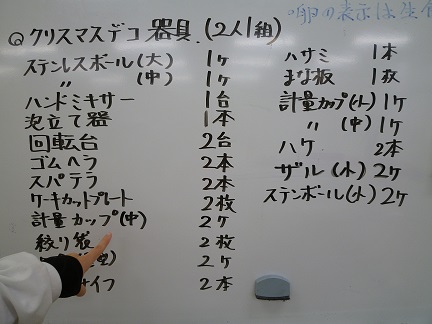 卵の表示は生
Qクリスマスデコ器具.(2人1組)
ステンレスボール(大) 1ヶ
〃 (中) 1ヶ
ハンドミキサー 1台
泡立て器 1本
回転台 2台
ゴムヘラ 2本
スパテラ 2本
ケーキカットプレート 2枚
計量カップ(中) 2ヶ
絞り袋 2枚
2ヶ
イフ 2本
ハサミ 1本
まな板 1枚
計量カップ(小) 1ヶ
〃 (中) 1ヶ
ハケ 2本
ザル(小) 2ヶ
ステンボール(小) 2ヶ